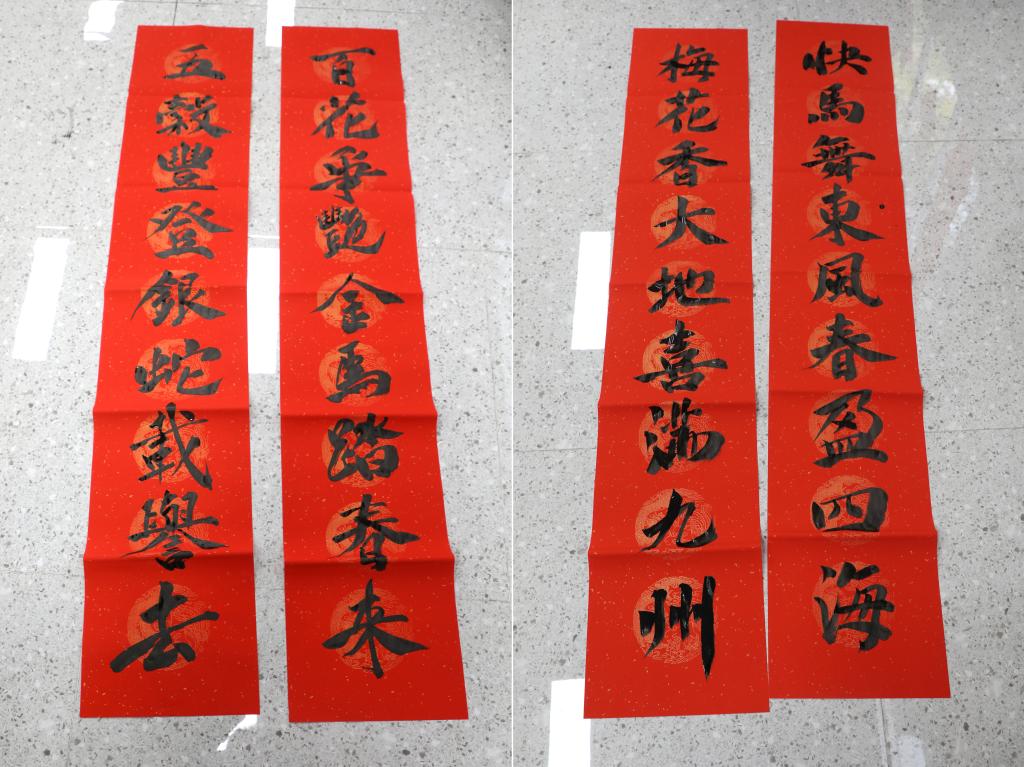 五穀豐登銀蛇載譽去
百花爭艷金馬踏春来
快馬舞東風春盈四海
梅花香大地喜滿九州